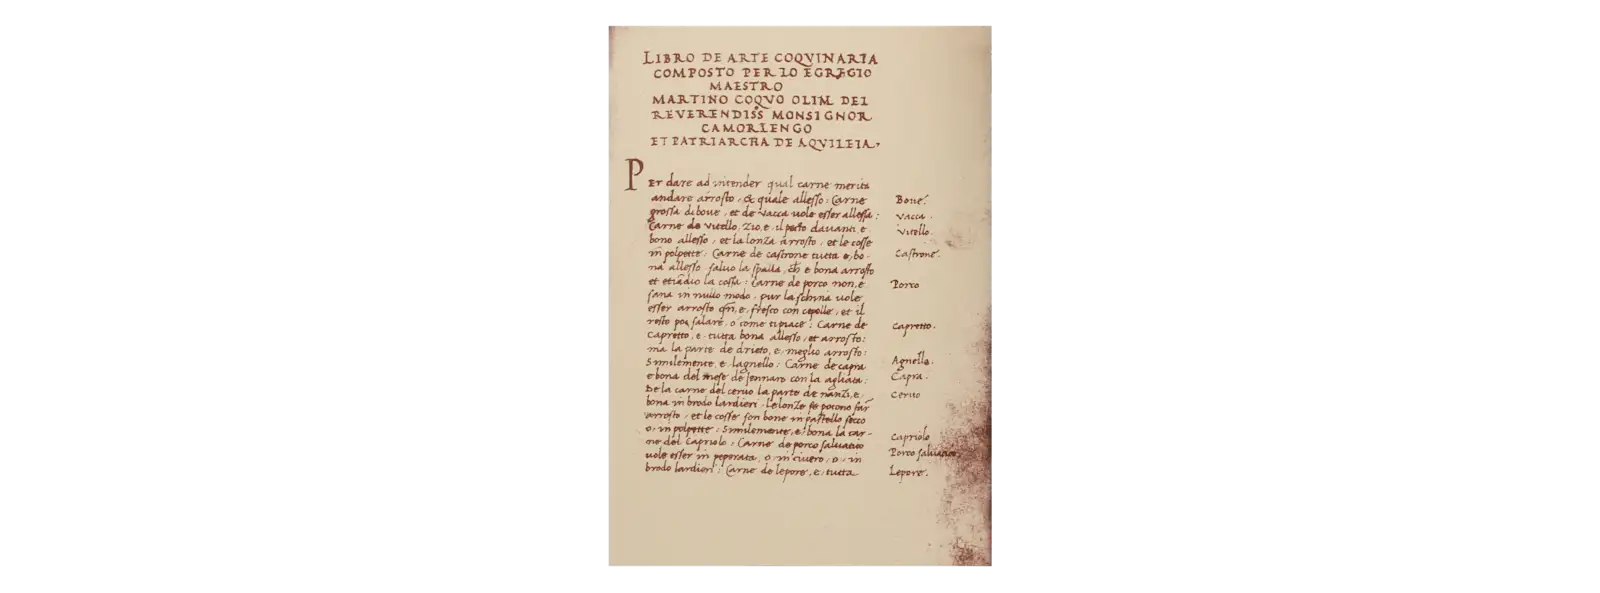 LIBRO DE ARTE COQVINARIA
COMPOSTO PER LO EGREGIO
MAESTRO
MARTINO COQVO OLIM DEL
REVERENDISS MONSIGNOR
CAMORLENGO
ET PATRIARCHA DE AQVILEIA.
Per dare ad intender qual carne merita
andare arrosto, & quale allesso: Carne
grossa di boue, et de vacca uole esser allessa:
Carne de vitello, zio, e, il pecto dauanti, e
bono allesso, et la lonza arrosto, et le cosse
in polpette: Carne de castrone tutta e, bo-
na allesso, saluo la spalla, ch e bona arrosto
et etiādio la cossa: Carne de porco non, e
sana in nullo modo, pur la schina uole
esser arrosto qn̄, e, fresco con cepolle, et il
resto poi salare, o come ti piace: Carne de
Capretto, e tutta bona allesso, et arrosto:
ma la parte de drieto, e, meglio arrosto:
Similemente, e lagnello: Carne de capra
e bona del mese de Jennaro con la agliata:
De la carne del ceruo la parte de nanzi, e,
bona in brodo lardieri, le lonze se potono far
arrosto, et le cosse son bone in pastello secco
o, in polpette: Similemente, e, bona la car-
ne del Capriolo, Carne de porco saluatico
uole esser in peperata, o, in ciuero, o, in
brodo lardieri: Carne de lepore, e, tutta
Boue.
vacca.
vitello.
Castrone.
Porco
Capretto.
Agnello.
Capra.
Ceruo
Capriolo
Porco saluatico.
Lepore.